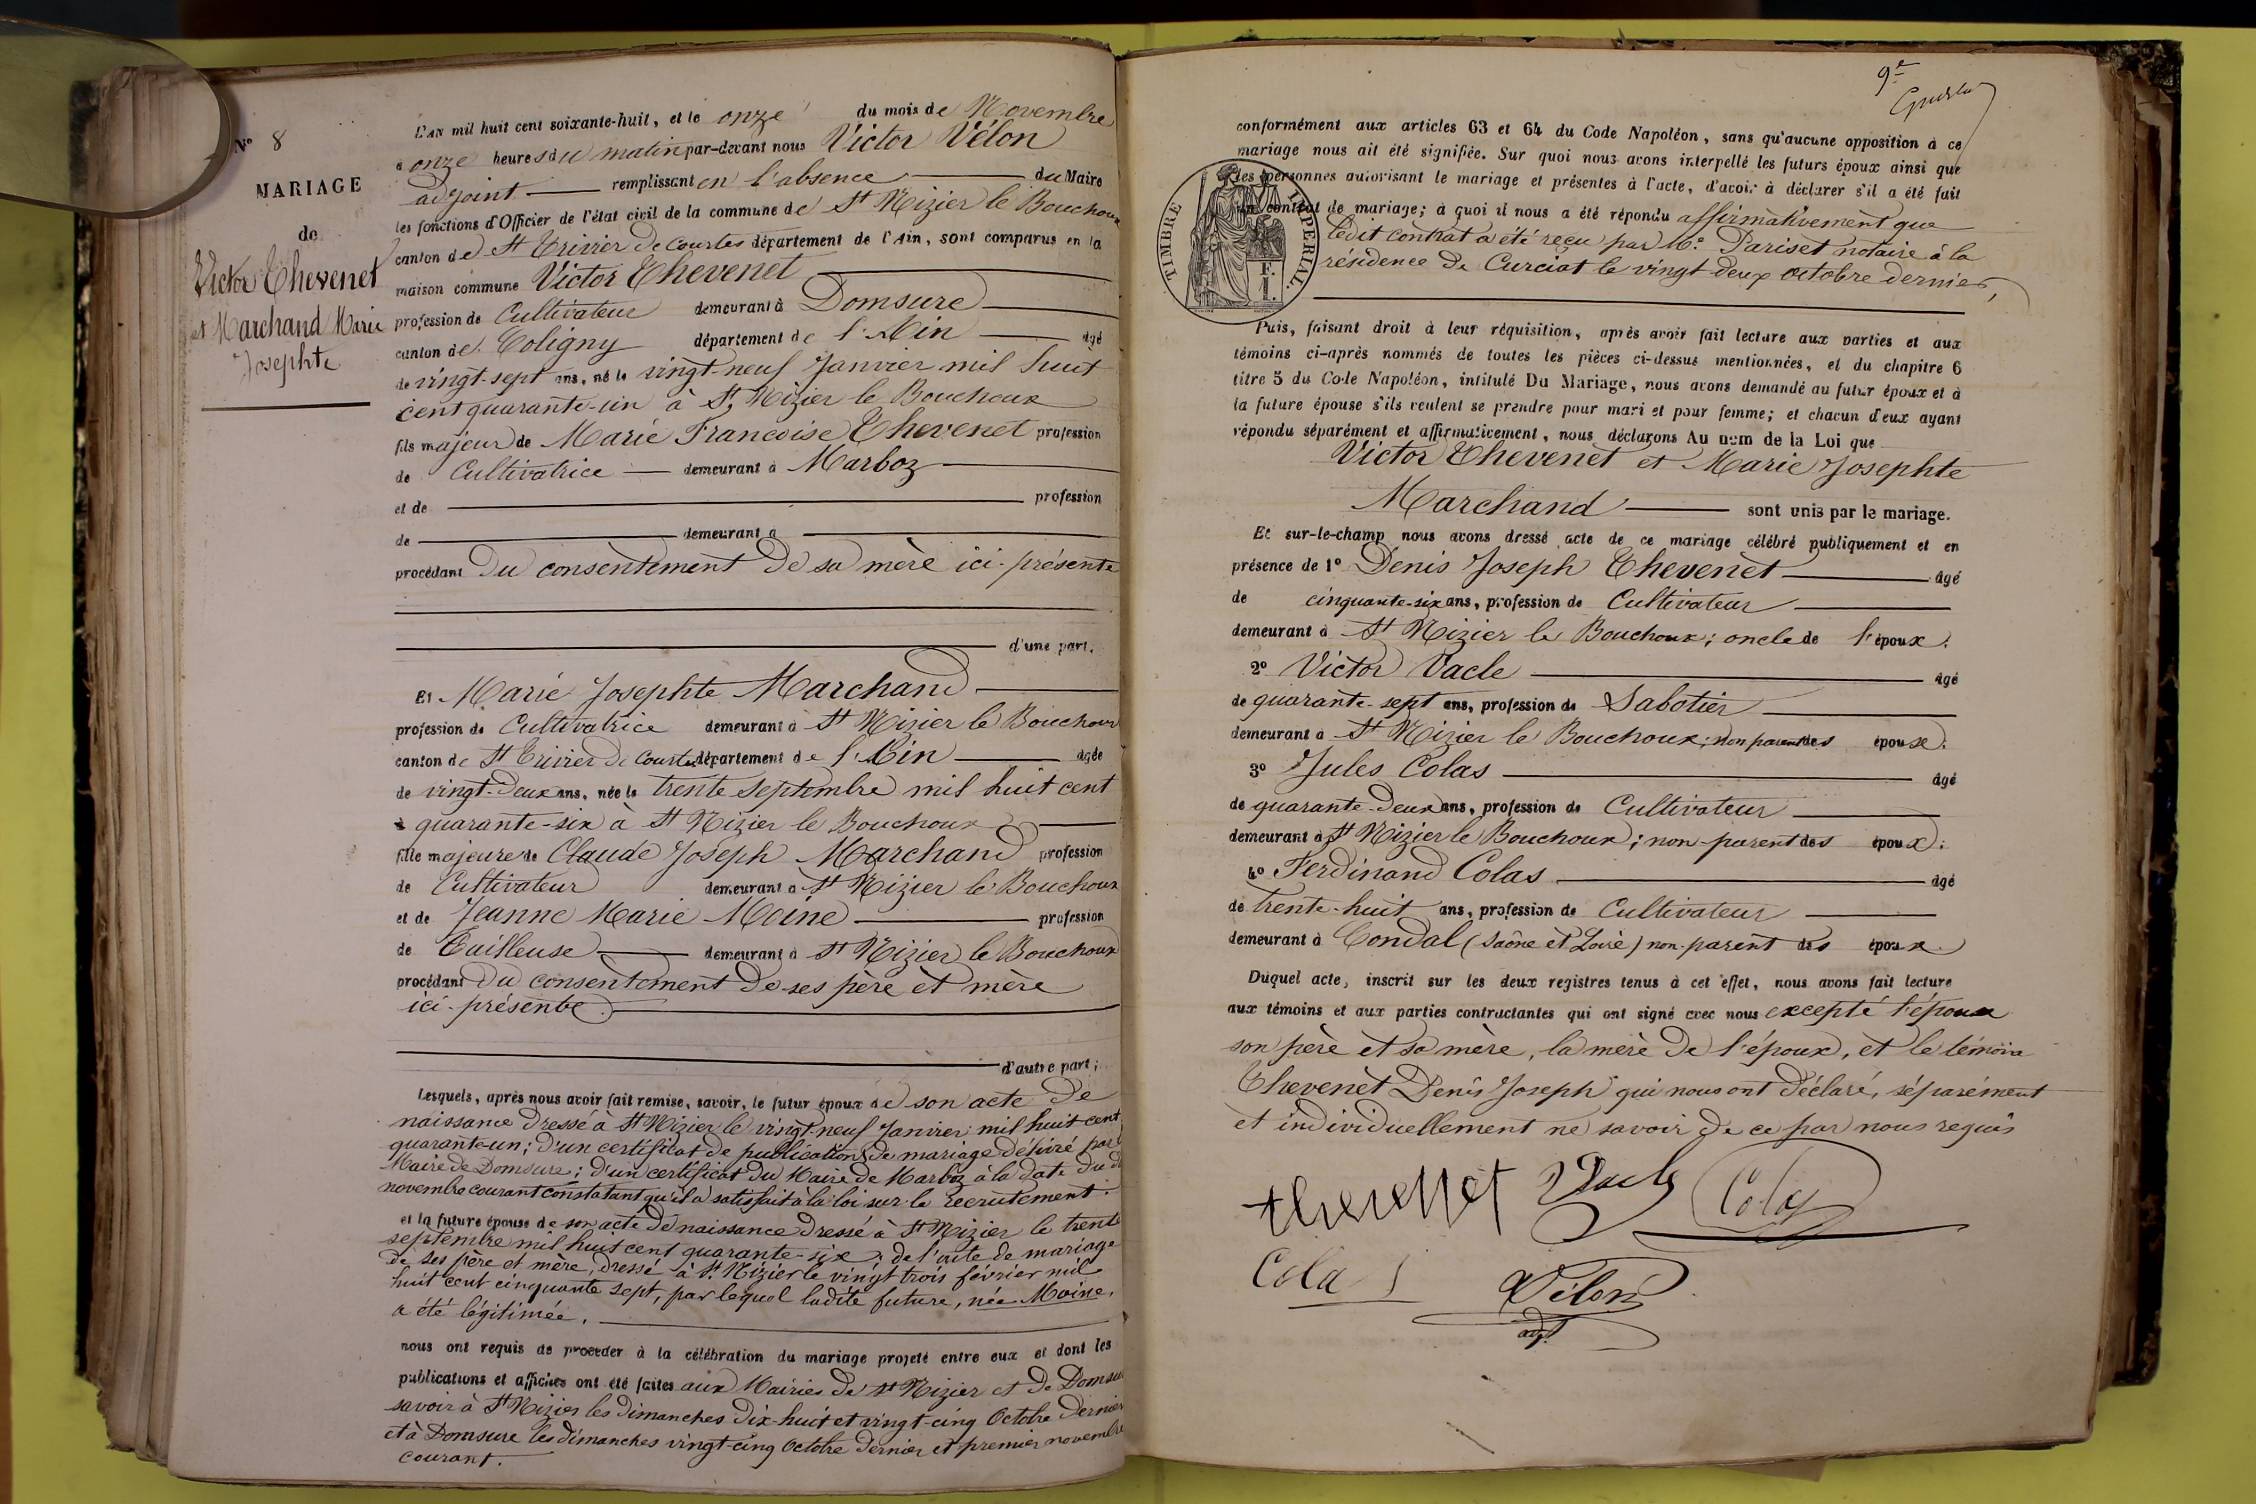 N° 8
MARIAGE
de
Victor Thevenet
et Marchand Marie
Josephte
L'AN mil huit cent soixante-huit, et le onze du mois de Novembre
à onze heures du matin par-devant nous Victor Vélon
adjoint remplissant en l'absence du Maire
les fonctions d'Officier de l'état civil de la commune de St Nizier le Bouchoux
canton de St Trivier de Courtes département de l'Ain, sont comparus en la
maison commune Victor Thevenet
profession de Cultivateur demeurant à Domsure
canton de Coligny département de l'Ain âgé
de vingt-sept ans, né le vingt-neuf Janvier mil huit
cent quarante-un à St Nizier le Bouchoux
fils majeur de Marie Francoise Thevenet profession
de Cultivatrice demeurant à Marboz
et de profession
de demeurant à
procédant du consentement de sa mère ici-présente
d'une part.
Et Marie Josephte Marchand
profession de Cultivatrice demeurant à St Nizier le Bouchoux
canton de St Trivier de Courtes département de l'Ain âgée
de vingt-deux ans, née le trente septembre mil huit cent
quarante-six à St Nizier le Bouchoux
fille majeure de Claude Joseph Marchand profession
de Cultivateur demeurant à St Nizier le Bouchoux
et de Jeanne Marie Moine profession
de Tailleuse demeurant à St Nizier le Bouchoux
procédant du consentement de ses père et mère
ici-présents
d'autre part;
Lesquels, après nous avoir fait remise, savoir, le futur époux de son acte de
naissance dressé à St Nizier le vingt-neuf Janvier mil huit cent
quarante-un; d'un certificat de publication de mariage délivré par
Maire de Domsure; d'un certificat du Maire de Marboz à la date du
novembre courant constatant qu'il a satisfait à la loi sur le recrutement.
et la future épouse de son acte de naissance dressé à St Nizier le trente
septembre mil huit cent quarante-six; de l'acte de mariage
de ses père et mère, dressé à St Nizier le vingt trois février mil
huit cent cinquante sept, par lequel ladite future, née Moine,
a été légitimée.
nous ont requis de procéder à la célébration du mariage projeté entre eux et dont les
publications et affiches ont été faites aux Mairies de St Nizier et de Domsure
savoir à St Nizier les dimanches dix-huit et vingt-cinq Octobre dernier
et à Domsure les dimanches vingt-cinq Octobre dernier et premier novembre
courant.
9e
conformément aux articles 63 et 64 du Code Napoléon, sans qu'aucune opposition à ce
mariage nous ait été signifiée. Sur quoi nous avons interpellé les futurs époux ainsi que
les personnes autorisant le mariage et présentes à l'acte, d'avoir à déclarer s'il a été fait
un contrat de mariage; à quoi il nous a été répondu affirmativement que
ledit contrat a été reçu par Me Pariset notaire à la
résidence de Curciat le vingt-deux octobre dernier,
TIMBRE IMPERIAL.
F.
I.
Puis, faisant droit à leur réquisition, après avoir fait lecture aux parties et aux
témoins ci-après nommés de toutes les pièces ci-dessus mentionnées, et du chapitre 6
titre 5 du Code Napoléon, intitulé Du Mariage, nous avons demandé au futur époux et à
la future épouse s'ils veulent se prendre pour mari et pour femme; et chacun d'eux ayant
répondu séparément et affirmativement, nous déclarons Au nom de la Loi que
Victor Thevenet et Marie Josephte
Marchand sont unis par le mariage.
Et sur-le-champ nous avons dressé acte de ce mariage célébré publiquement et en
présence de 1° Denis Joseph Thevenet âgé
de cinquante-six ans, profession de Cultivateur
demeurant à St Nizier le Bouchoux; oncle de l'époux.
2° Victor Vacle âgé
de quarante-sept ans, profession de Sabotier
demeurant à St Nizier le Bouchoux; non parent des épouse.
3° Jules Colas âgé
de quarante-deux ans, profession de Cultivateur
demeurant à St Nizier le Bouchoux; non-parent des époux.
4° Ferdinand Colas âgé
de trente-huit ans, profession de Cultivateur
demeurant à Condal (Saône et Loire) non-parent des époux.
Duquel acte, inscrit sur les deux registres tenus à cet effet, nous avons fait lecture
aux témoins et aux parties contractantes qui ont signé avec nous excepté l'épouse
son père et sa mère, la mère de l'époux, et le témoin
Thevenet Denis Joseph qui nous ont déclaré, séparément
et individuellement ne savoir de ce par nous requis
thevenet Vacle Colas
Colas Vélon
adjt